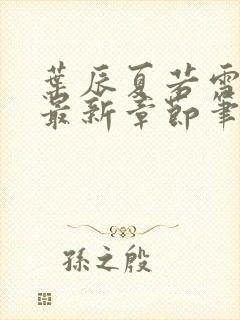 葉辰夏若雪
最新章節筆
孫之殷